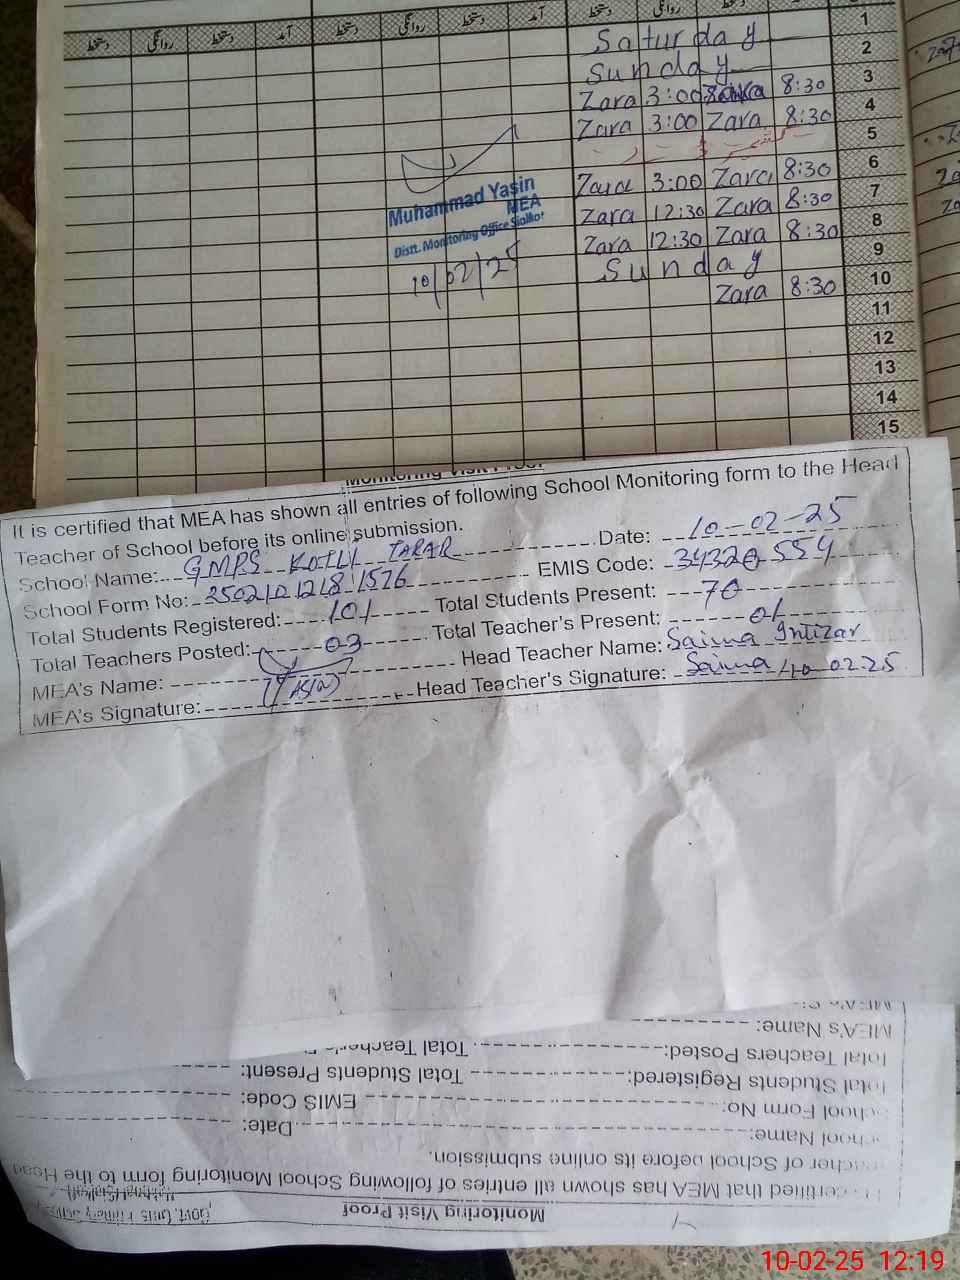 دستخط روانگی دستخط آمد دستخط روانگی دستخط آمد دستخط روانگی دستخط
1
Saturday 2
Sunday 3
Zara 3:00 Zara 8:30 4
Zara 3:00 Zara 8:30 5
6
Zara 3:00 Zara 8:30 7
Zara 12:30 Zara 8:30 8
Zara 12:30 Zara 8:30 9
Sunday 10
Zara 8:30 11
12
13
14
15
Muhammad Yasin
MEA
Distt. Monitoring Office Sialkot
10/02/25
Monitoring Visit Proof
It is certified that MEA has shown all entries of following School Monitoring form to the Head
Teacher of School before its online submission.
School Name: GMPS KOTLI TARAR Date: 10-02-25
School Form No: EMIS Code: 34320554
Total Students Registered: 101 Total Students Present: 70
Total Teachers Posted: 03 Total Teacher's Present: 01
MEA's Name: Head Teacher Name: Saima Intizar
MEA's Signature: Head Teacher's Signature: Saima 10-02-25
Monitoring Visit Proof
certified that MEA has shown all entries of following School Monitoring form to the Head
Teacher of School before its online submission.
School Name: Date:
School Form No: EMIS Code:
Total Students Registered: Total Students Present:
Total Teachers Posted: Total Teacher's
MEA's Name:
10-02-25 12:19